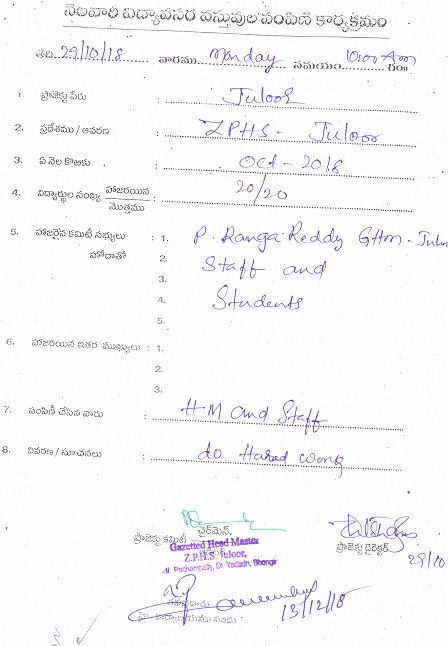 నెలవారీ విద్యావసర వస్తువుల పంపిణి కార్యక్రమం
తేది. 29/10/18 వారము monday సమయం 10:00 Am గం॥
1. ప్రాజెక్టు పేరు : Juloor
2. ప్రదేశము / ఆవరణ : ZPHS - Juloor
3. ఏ నెల కొఱకు : Oct - 2018
4. విద్యార్థుల సంఖ్య హాజరయిన / మొత్తము : 20/20
5. హాజరైన కమిటీ సభ్యులు : 1. P. Ranga Reddy GHM - Julu
హోదాతో 2. Staff and
3.
4. Students
5.
6. హాజరయిన ఇతర ముఖ్యులు : 1.
2.
3.
7. పంపిణీ చేసిన వారు : H M and Staff
8. వివరణ / సూచనలు : do Hared work
ప్రాజెక్టు కమిటీ చైర్‌మెన్,
ప్రాజెక్టు డైరెక్టర్
Gazetted Head Master
Z.P.H.S. Juloor,
M. Pochampally, Dt. Yadadri, Bhongir
29/10
13/12/18